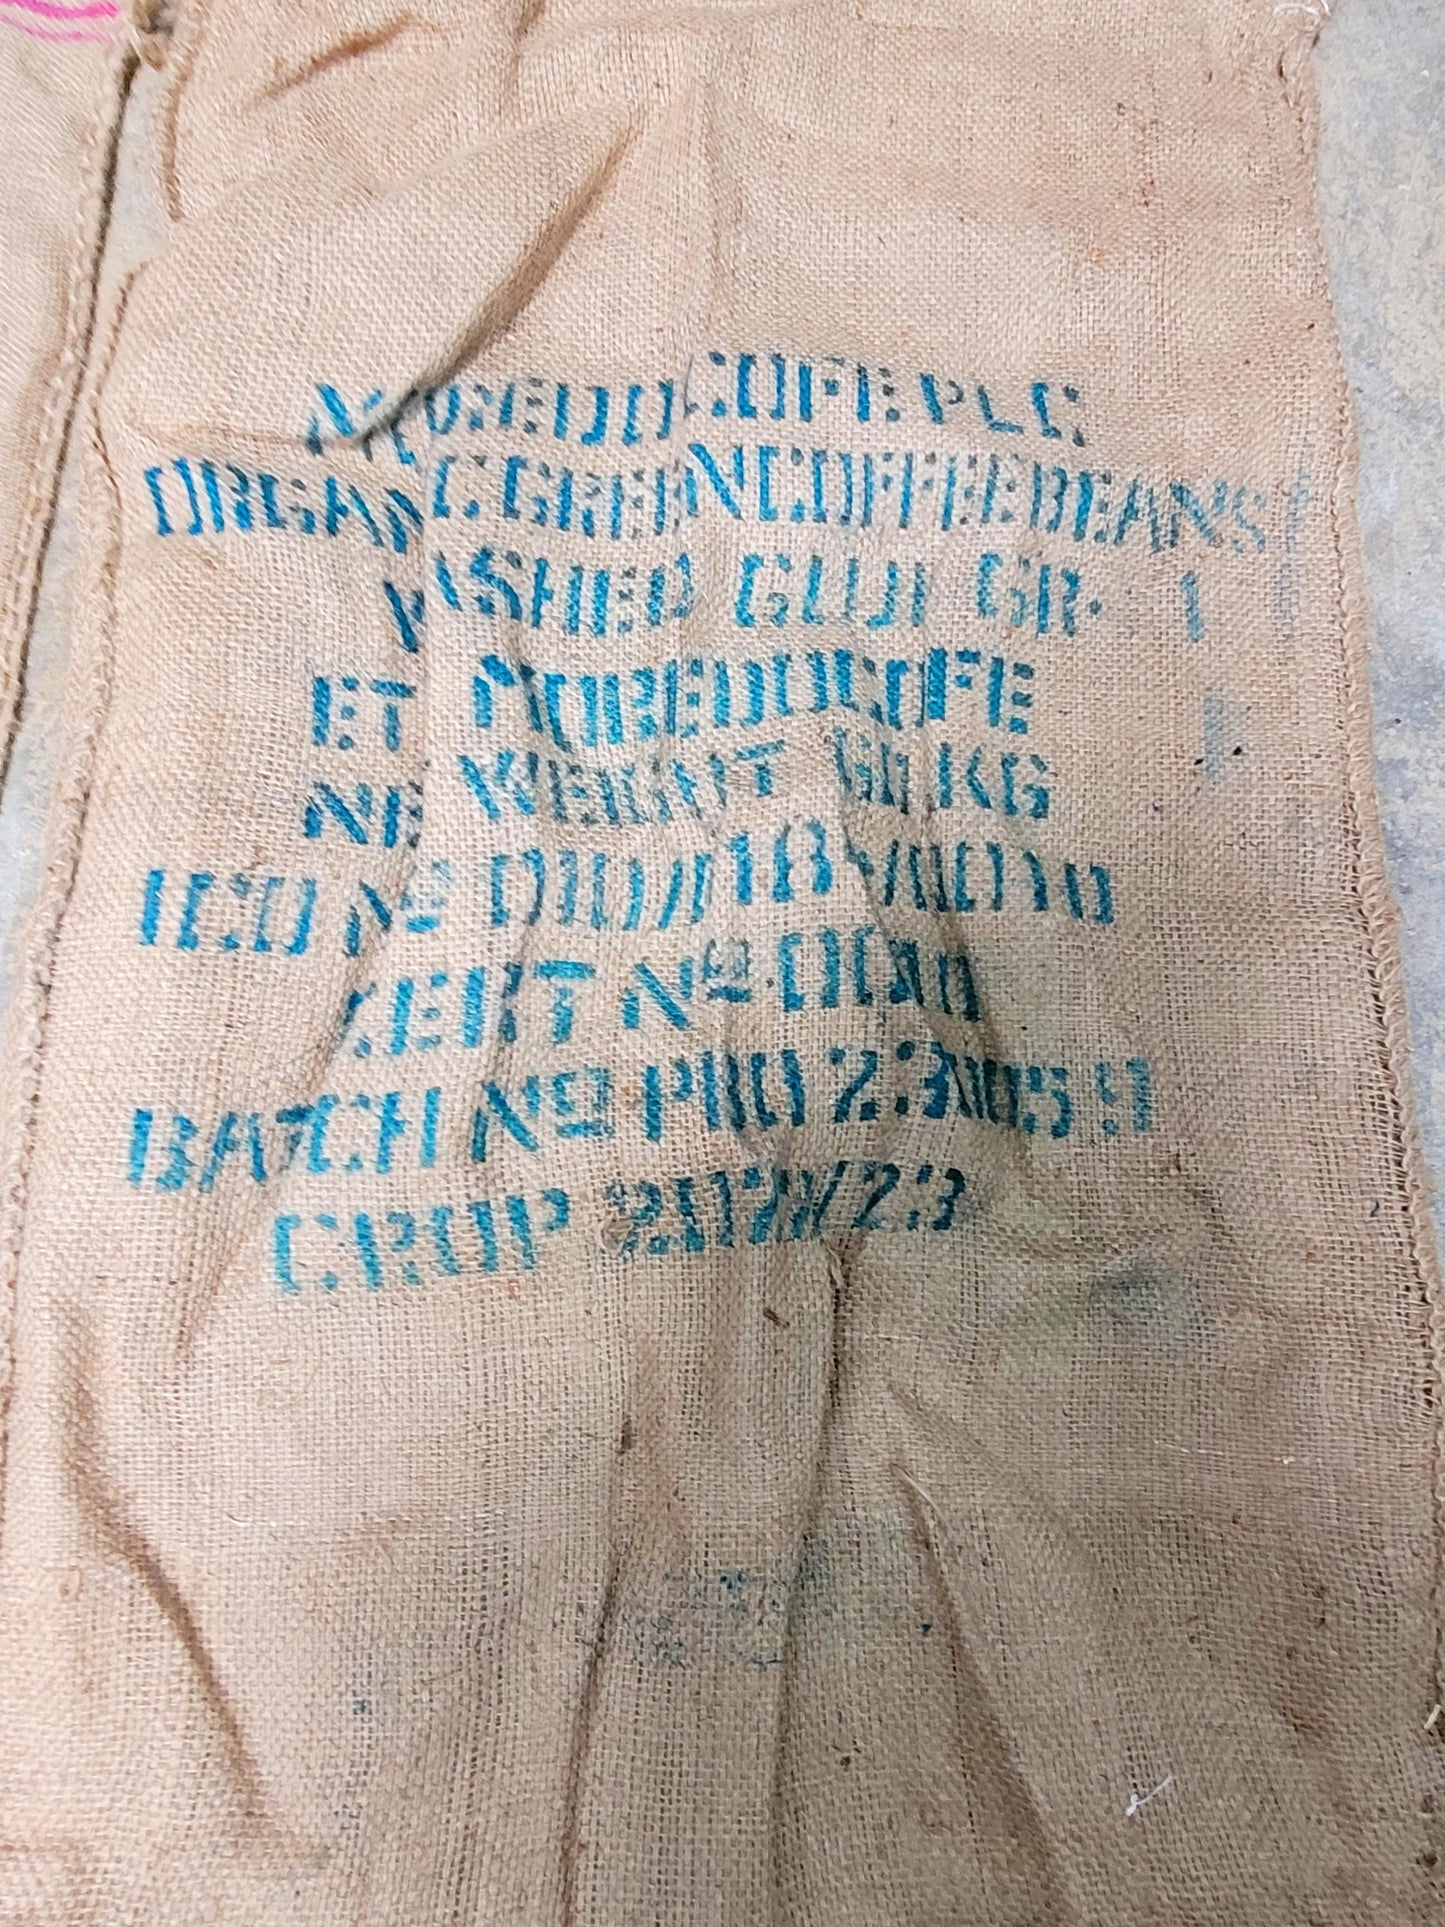 COFE PLC
ORGANIC GREEN COFFEE BEANS
WASHED GUJI GR- 1
ET MOREDOCOFE
NET WEIGHT 60 KG
ICO Nº 010/
CERT Nº
BATCH Nº PRO 23
CROP 2022/23